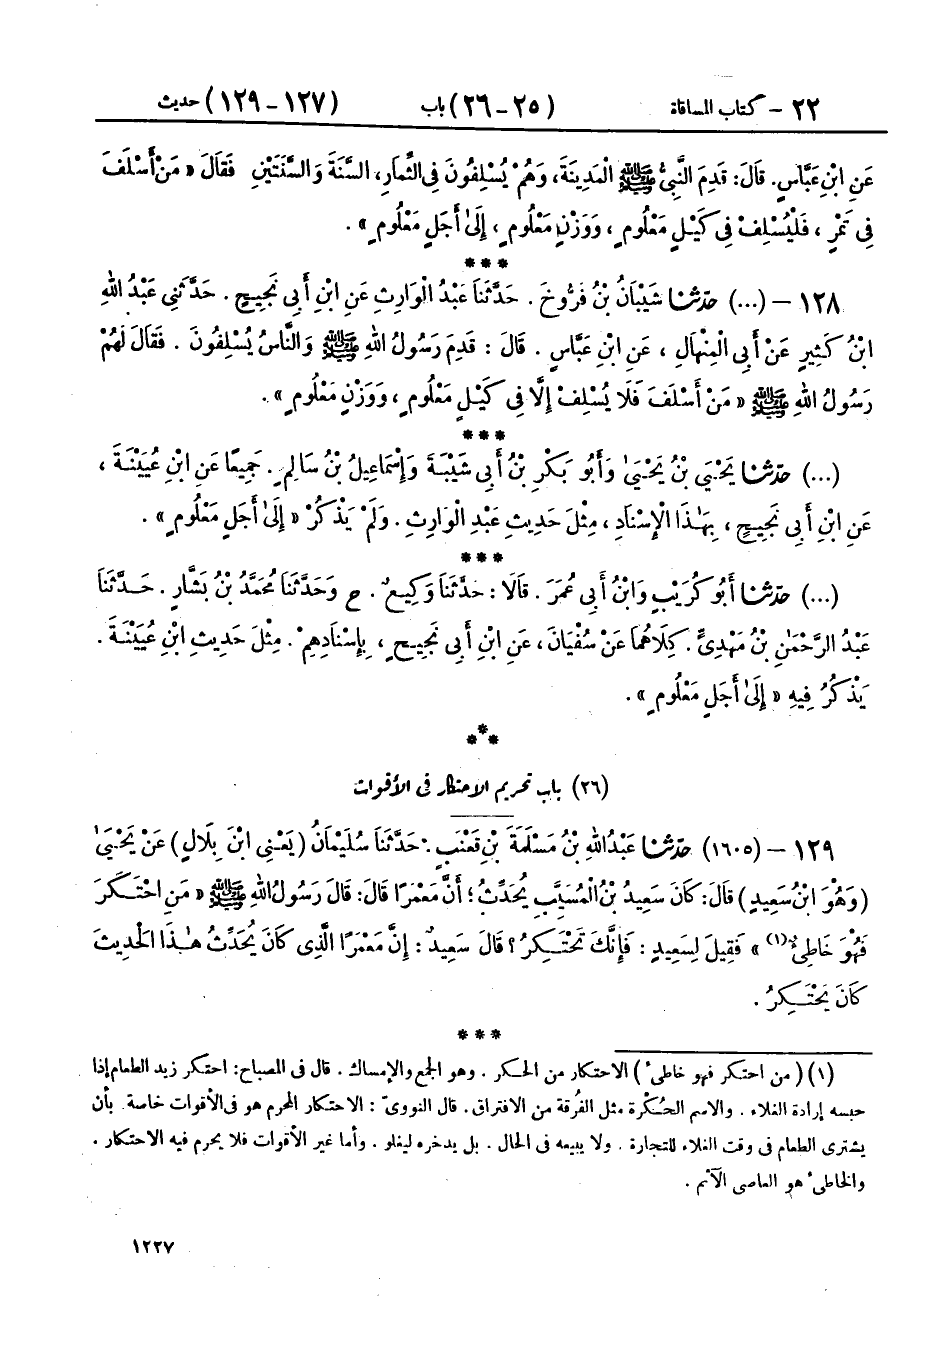 ٢٢ - كتاب المساقاة (٢٥ - ٢٦) باب (١٢٧ - ١٢٩) حديث
عَنِ ابْنِ عَبَّاسٍ. قَالَ: قَدِمَ النَّبِيُّ ﷺ الْمَدِينَةَ، وَهُمْ يُسْلِفُونَ فِي الثِّمَارِ، السَّنَةَ وَالسَّنَتَيْنِ فَقَالَ « مَنْ أَسْلَفَ
فِي تَمْرٍ ، فَلْيُسْلِفْ فِي كَيْلٍ مَعْلُومٍ ، وَوَزْنٍ مَعْلُومٍ ، إِلَىٰ أَجَلٍ مَعْلُومٍ » .
***
١٢٨ - (...) حَدَّثَنَا شَيْبَانُ بْنُ فَرُّوخَ . حَدَّثَنَا عَبْدُ الْوَارِثِ عَنِ ابْنِ أَبِي نَجِيحٍ . حَدَّثَنِي عَبْدُ اللهِ
ابْنُ كَثِيرٍ عَنْ أَبِي الْمِنْهَالِ ، عَنِ ابْنِ عَبَّاسٍ . قَالَ : قَدِمَ رَسُولُ اللهِ ﷺ وَالنَّاسُ يُسْلِفُونَ . فَقَالَ لَهُمْ
رَسُولُ اللهِ ﷺ « مَنْ أَسْلَفَ فَلَا يُسْلِفْ إِلَّا فِي كَيْلٍ مَعْلُومٍ ، وَوَزْنٍ مَعْلُومٍ » .
***
(...) حَدَّثَنَا يَحْيَى بْنُ يَحْيَىٰ وَأَبُو بَكْرِ بْنُ أَبِي شَيْبَةَ وَإِسْمَاعِيلُ بْنُ سَالِمٍ . جَمِيعًا عَنِ ابْنِ عُيَيْنَةَ ،
عَنِ ابْنِ أَبِي نَجِيحٍ ، بِهَٰذَا الْإِسْنَادِ ، مِثْلَ حَدِيثِ عَبْدِ الْوَارِثِ . وَلَمْ يَذْكُرْ « إِلَىٰ أَجَلٍ مَعْلُومٍ » .
***
(...) حَدَّثَنَا أَبُو كُرَيْبٍ وَابْنُ أَبِي عُمَرَ . قَالَا : حَدَّثَنَا وَكِيعٌ . ح وَحَدَّثَنَا مُحَمَّدُ بْنُ بَشَّارٍ . حَدَّثَنَا
عَبْدُ الرَّحْمَٰنِ بْنُ مَهْدِيٍّ . كِلَاهُمَا عَنْ سُفْيَانَ ، عَنِ ابْنِ أَبِي نَجِيحٍ ، بِإِسْنَادِهِمْ . مِثْلَ حَدِيثِ ابْنِ عُيَيْنَةَ .
يَذْكُرُ فِيهِ « إِلَىٰ أَجَلٍ مَعْلُومٍ » .
***
(٢٦) باب تحريم الاحتكار فى الأقوات
١٢٩ - (١٦٠٥) حَدَّثَنَا عَبْدُ اللهِ بْنُ مَسْلَمَةَ بْنِ قَعْنَبٍ . حَدَّثَنَا سُلَيْمَانُ (يَعْنِي ابْنَ بِلَالٍ) عَنْ يَحْيَىٰ
(وَهُوَ ابْنُ سَعِيدٍ) قَالَ: كَانَ سَعِيدُ بْنُ الْمُسَيَّبِ يُحَدِّثُ ؛ أَنَّ مَعْمَرًا قَالَ: قَالَ رَسُولُ اللهِ ﷺ « مَنِ احْتَكَرَ
فَهُوَ خَاطِئٌ(١) » فَقِيلَ لِسَعِيدٍ : فَإِنَّكَ تَحْتَكِرُ ؟ قَالَ سَعِيدٌ : إِنَّ مَعْمَرًا الَّذِي كَانَ يُحَدِّثُ هَٰذَا الْحَدِيثَ
كَانَ يَحْتَكِرُ .
***
(١) (من احتكر فهو خاطئ) الاحتكار من الحكر . وهو الجمع والإمساك . قال فى المصباح: احتكر زيد الطعام إذا
حبسه إرادة الغلاء . والاسم الحُكْرة مثل الفُرقة من الافتراق . قال النووىّ : الاحتكار المحرم هو فى الأقوات خاصة . بأن
يشترى الطعام فى وقت الغلاء للتجارة . ولا يبيعه فى الحال . بل يدخره ليغلو . وأما غير الأقوات فلا يحرم فيه الاحتكار .
والخاطئ هو العاصى الآثم .
١٢٢٧